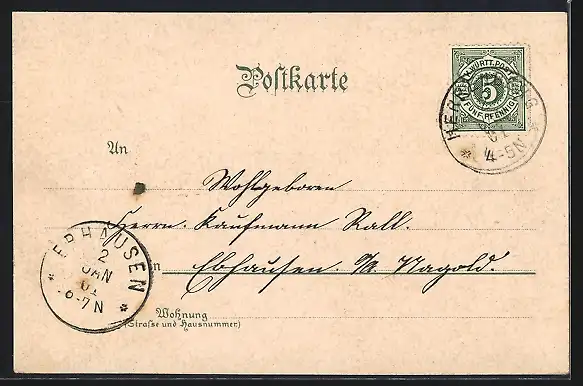 Postkarte
K. WÜRTT. POST
5
FÜNF PFENNIG
01
4-5N
An
Wohlgeboren
Herrn Kaufmann Rall.
in Ebhausen. O/A. Nagold.
EBHAUSEN
2
JAN
01
6-7N
Wohnung
(Strasse und Hausnummer)